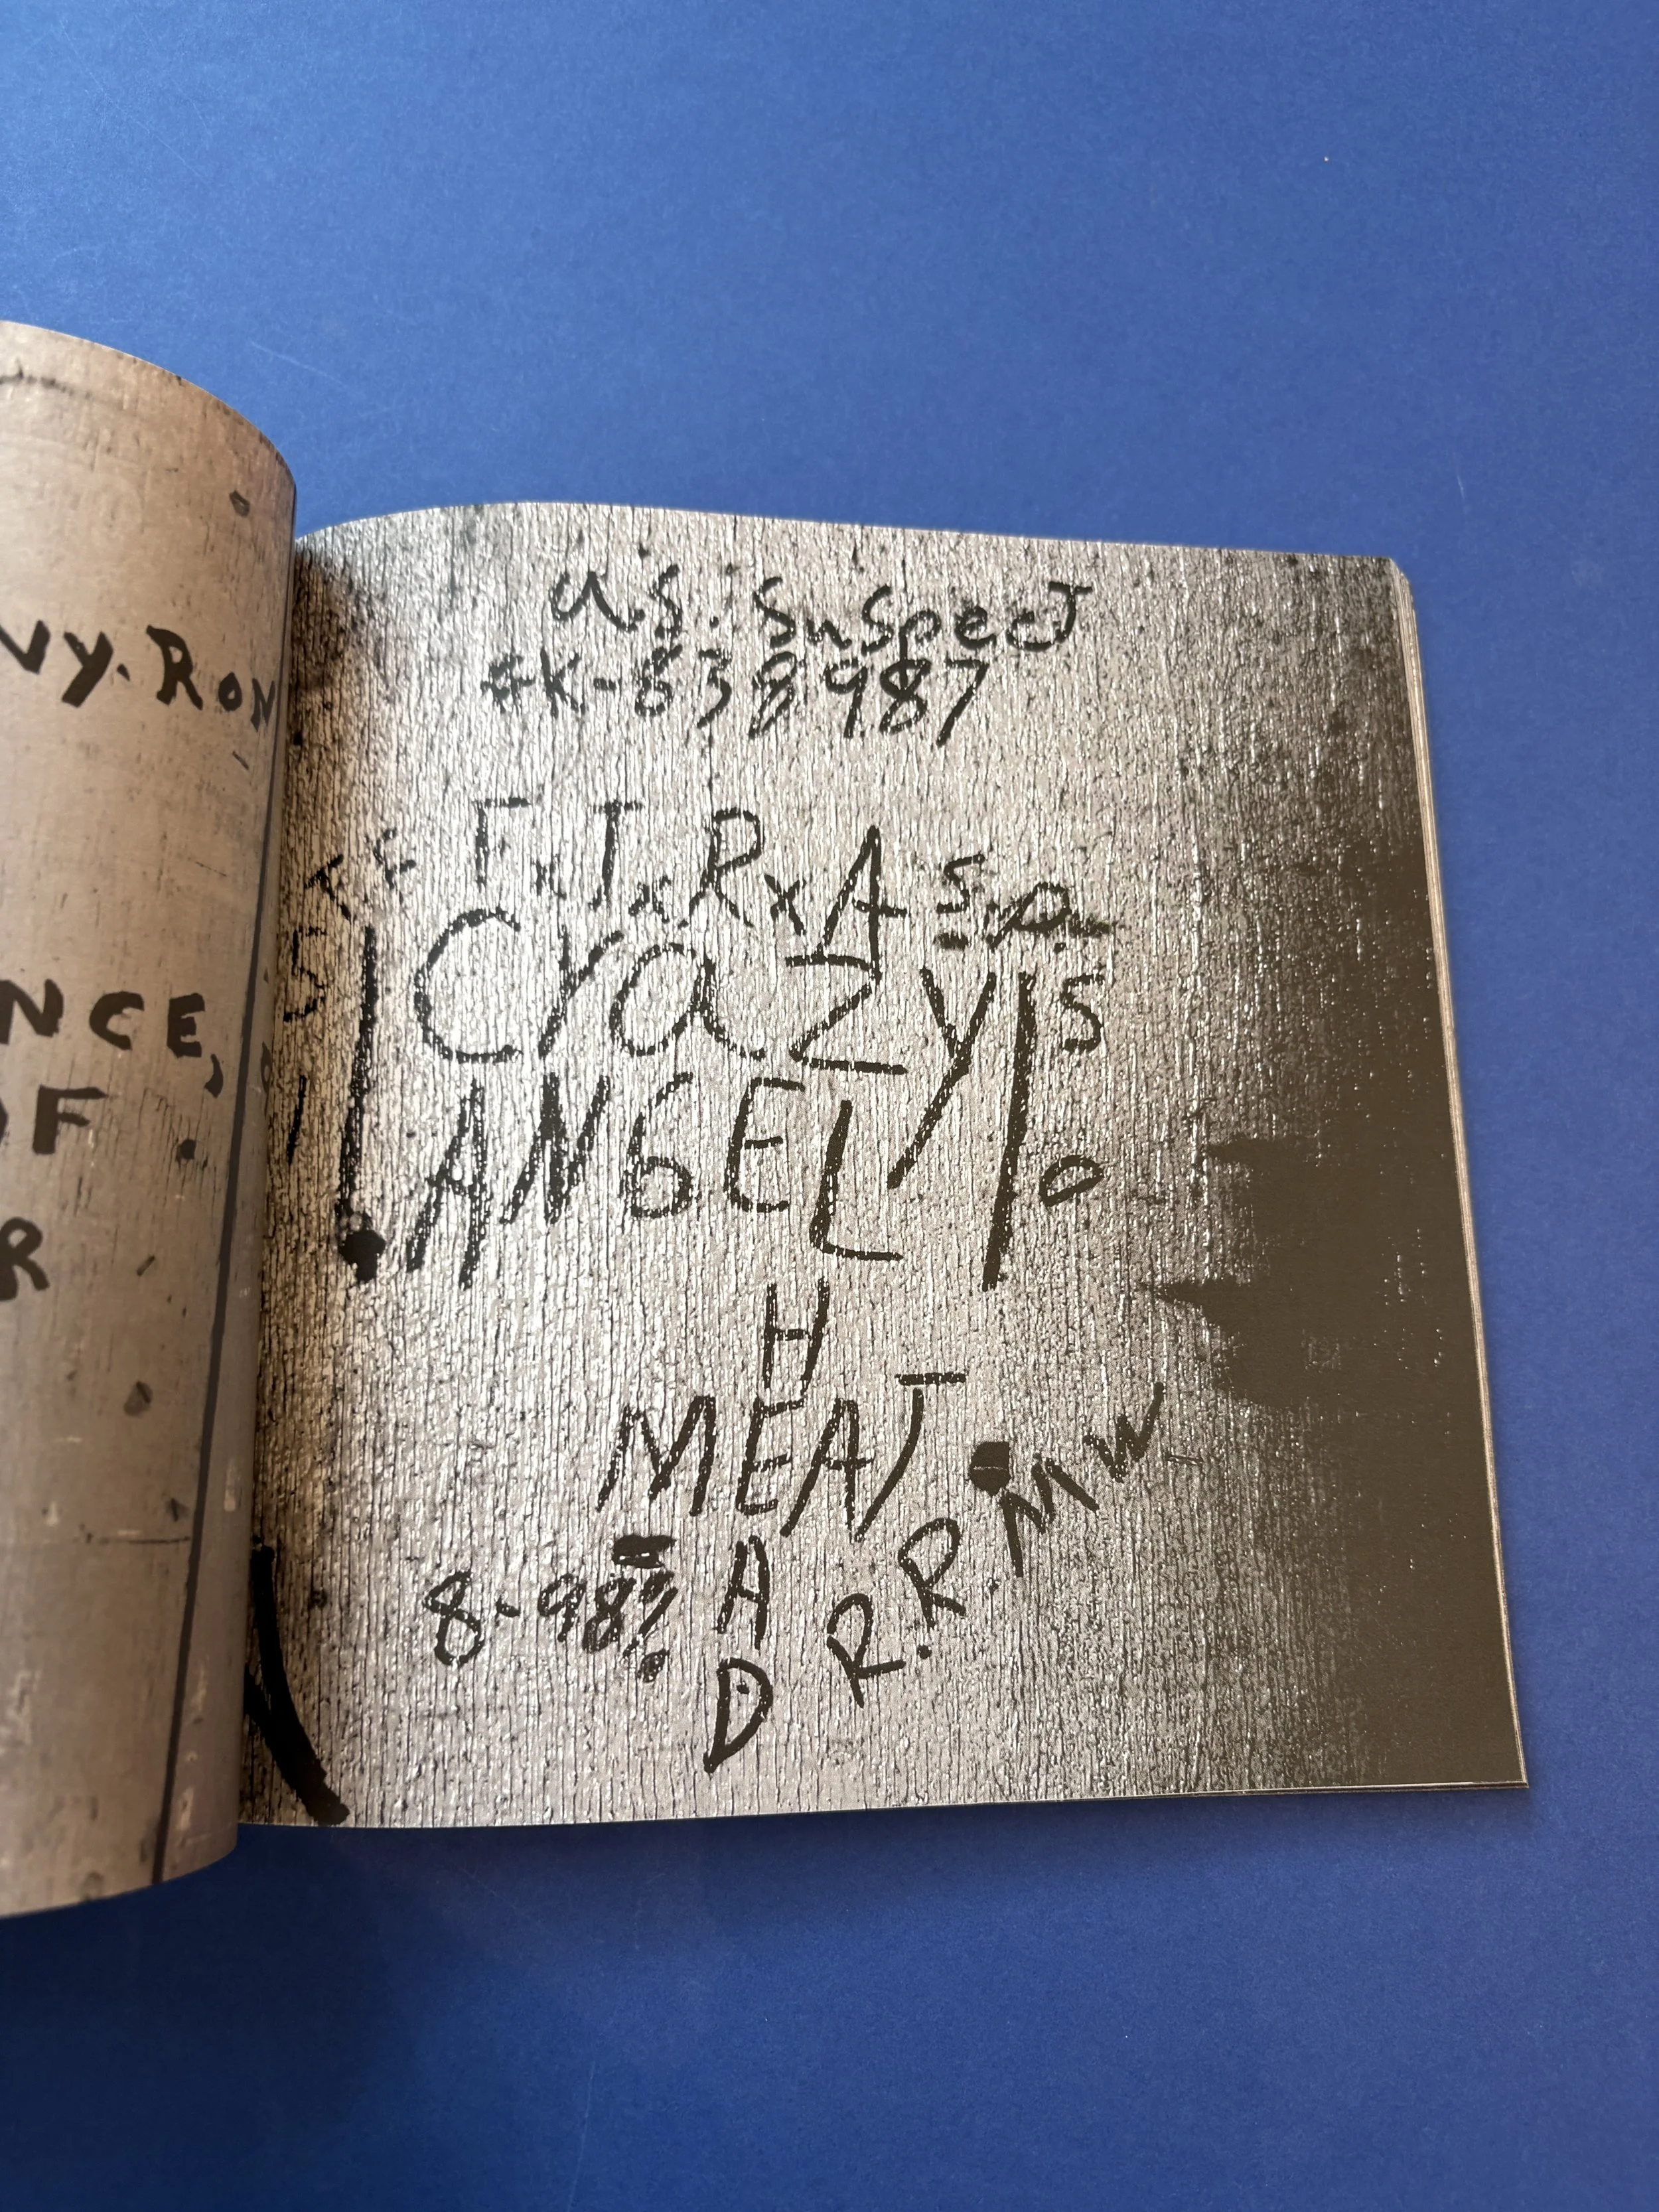 VY. RON
NCE,
OF
R
U.S. SuSpecT
#K-838987
FxTxRxA S.P.
Crazy
S
ANGEL
O
H
MEAT
A
D
8-98?
R.R. MW